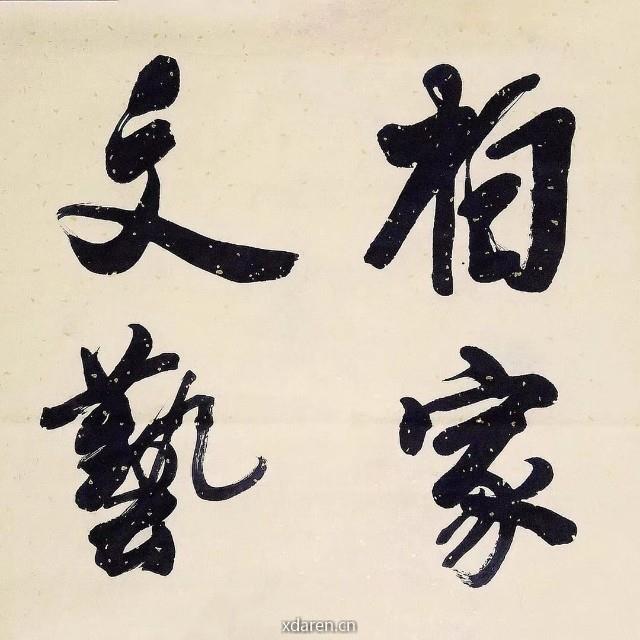 柏家
文藝
xdaren.cn